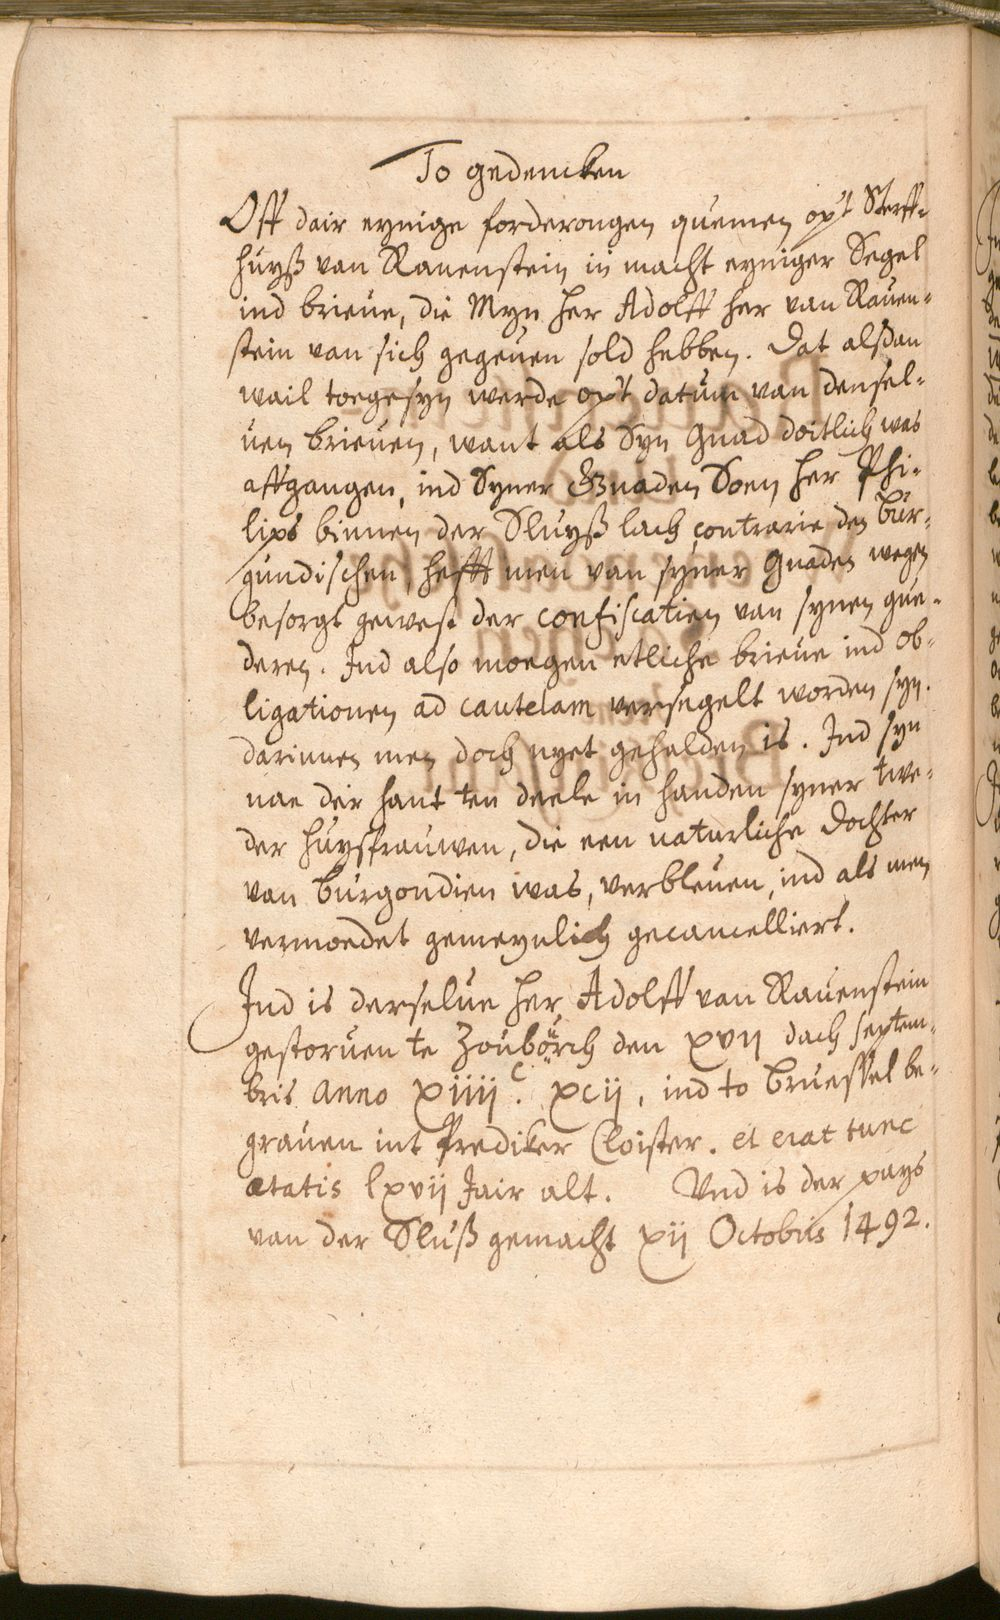 To gedencken
Off dair eynige forderongen quemen op't Sterff-
huyß van Rauenstein in macht eyniger Segel
ind brieue, die Myn her Adolff her van Rauen-
stein van sich gegeuen sold hebben. Dat alßdan
wail toegesyn werde op't datum van densel-
uen brieuen, want als Syn Gnad doitlich was
affgangen, ind Syner Gnaden Soen her Phi-
lips binnen der Sluyß lach contrarie den Bur-
gundischen, hefft men van syner Gnaden wegen
besorgt gewest der confiscatien van synen gue-
deren. Ind also moegen etliche brieue ind ob-
ligationen ad cautelam versegelt worden syn.
darinnen men doch nyet gehalden is. Ind syn
nae der hant ten deele in handen syner twe-
der huysfrauwen, die een naturliche dochter
van Burgondien was, verbleuen, ind als men
vermoedet gemeynlich gecancelliert.
Ind is derselue her Adolff van Rauenstein
gestoruen te den xvij dach septem-
bris anno xiiij c. xcij, ind to Bruessel be-
grauen int Prediker Cloister. et erat tunc
ætatis lxvij Jair alt. Vnd is der pays
van der Sluß gemacht xij Octobris 1492.